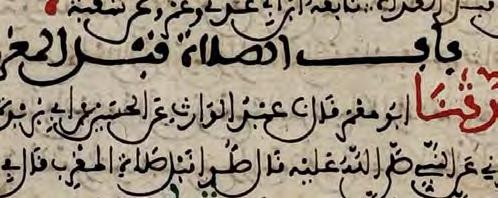 تابعه ابن ابي عدي وغندر وعن شعبة
باب الصلاة قبل المغر
حدثنا ابو معمر قال عبد الوارث عن الحسين عن ابن بريد
ني عن النبي صلى الله عليه قال صلوا قبل صلاة المغرب قال في